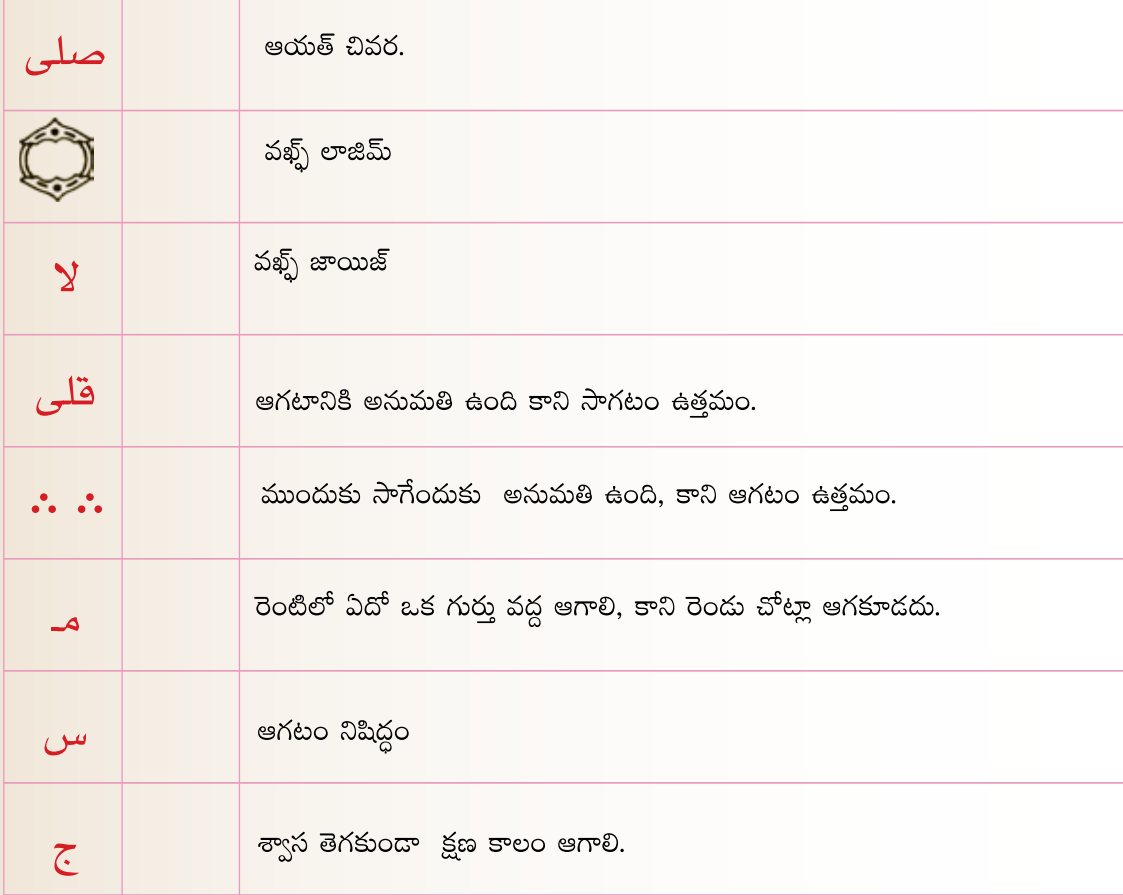 صلى ఆయత్ చివర.
వఖ్ఫ్ లాజిమ్
لا వఖ్ఫ్ జాయిజ్
قلى ఆగటానికి అనుమతి ఉంది కాని సాగటం ఉత్తమం.
∴ ∴ ముందుకు సాగేందుకు అనుమతి ఉంది, కాని ఆగటం ఉత్తమం.
مـ రెంటిలో ఏదో ఒక గుర్తు వద్ద ఆగాలి, కాని రెండు చోట్లా ఆగకూడదు.
س ఆగటం నిషిద్ధం
ج శ్వాస తెగకుండా క్షణ కాలం ఆగాలి.